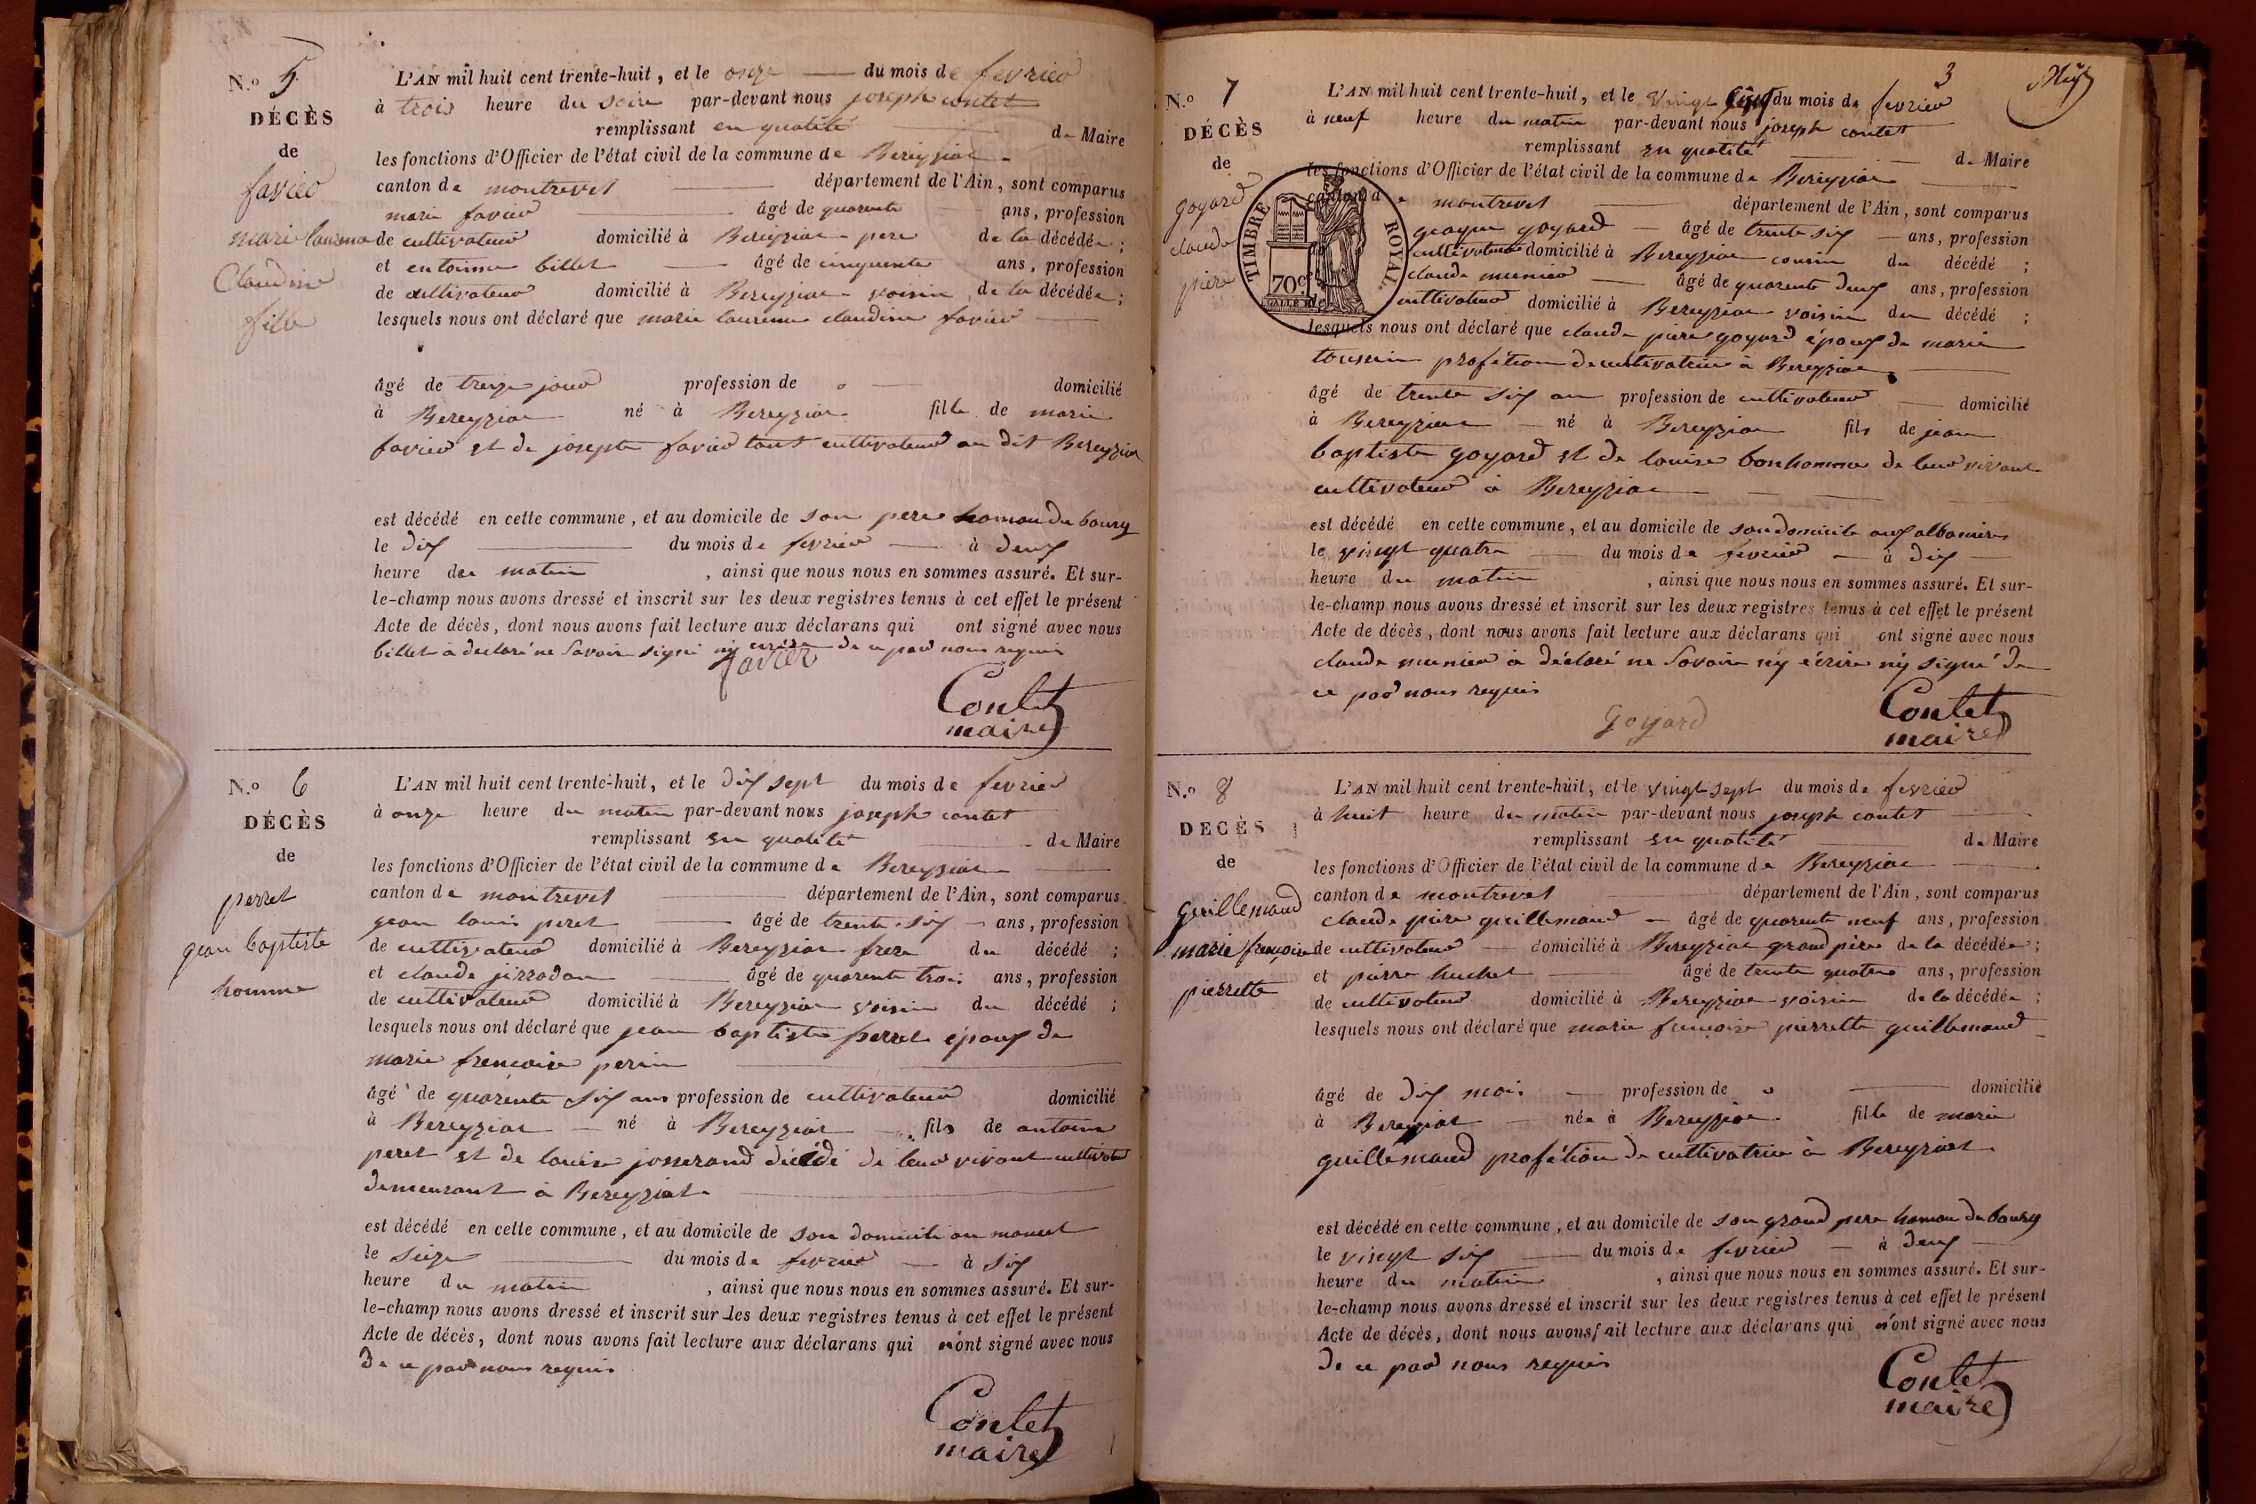 N.o 5
DÉCÈS
de
favier
marie laurence
Claudine
fille
L'AN mil huit cent trente-huit, et le onze du mois de fevrier
à trois heure du soire par-devant nous joseph contet
remplissant en qualité de Maire
les fonctions d'Officier de l'état civil de la commune de Bereyziat
canton de montrevel département de l'Ain, sont comparus
marie favier âgé de quarente ans, profession
de cultivateur domicilié à Bereyziat pere de la décédée ;
et entoinne billet âgé de cinquente ans, profession
de cultivateur domicilié à Bereyziat voisin de la décédée ;
lesquels nous ont déclaré que marie laurence claudine favier
âgé de treize jour profession de domicilié
à Bereyziat né à Bereyziat fille de marie
favier et de josepte favier tout cultivateur au dit Bereyziat
est décédé en cette commune, et au domicile de son pere hamau du bourg
le dix du mois de fevrier à deux
heure du matin , ainsi que nous nous en sommes assuré. Et sur-
le-champ nous avons dressé et inscrit sur les deux registres tenus à cet effet le présent
Acte de décès, dont nous avons fait lecture aux déclarans qui ont signé avec nous
billet à declaré ne savoir signé ny ecrire de ce par nous requis
favier
Contet
maire
N.o 6
DÉCÈS
de
perret
jean baptiste
homme
L'AN mil huit cent trente-huit, et le dix sept du mois de fevrier
à onze heure du matin par-devant nous joseph contet
remplissant en qualité de Maire
les fonctions d'Officier de l'état civil de la commune de Bereyziat
canton de montrevel département de l'Ain, sont comparus
jean louis peret âgé de trente six ans, profession
de cultivateur domicilié à Bereyziat frere du décédé ;
et claude âgé de quarente trois ans, profession
de cultivateur domicilié à Bereyziat voisin du décédé ;
lesquels nous ont déclaré que jean baptiste perret époux de
marie francoise perin
âgé de quarente six ans profession de cultivateur domicilié
à Bereyziat né à Bereyziat fils de antoine
peret et de louise josserand décédé de leur vivant cultivateur
demeurant à Bereyziat
est décédé en cette commune, et au domicile de son domicile au
le seize du mois de fevrier à six
heure du matin , ainsi que nous nous en sommes assuré. Et sur-
le-champ nous avons dressé et inscrit sur les deux registres tenus à cet effet le présent
Acte de décès, dont nous avons fait lecture aux déclarans qui n'ont signé avec nous
de ce par nous requis
Contet
maire
3
N.o 7
DÉCÈS
de
goyard
claude
piere
TIMBRE ROYAL
70c
L'AN mil huit cent trente-huit, et le vingt cinq du mois de fevrier
à neuf heure du matin par-devant nous joseph contet
remplissant en qualité de Maire
les fonctions d'Officier de l'état civil de la commune de Bereyziat
canton de montrevel département de l'Ain, sont comparus
goyard âgé de trente six ans, profession
cultivateur domicilié à Bereyziat cousin du décédé ;
claude munier âgé de quarente deux ans, profession
de cultivateur domicilié à Bereyziat voisin du décédé ;
lesquels nous ont déclaré que claude piere goyard époux de marie
tousain profétion de cultivatrice à Bereyziat
âgé de trente six an profession de cultivateur domicilié
à Bereyziat né à Bereyziat fils de jean
baptiste goyard et de louise bonhomme de leur vivant
cultivateur à Bereyziat
est décédé en cette commune, et au domicile de son domicile aux
le vingt quatre du mois de fevrier à dix
heure du matin , ainsi que nous nous en sommes assuré. Et sur-
le-champ nous avons dressé et inscrit sur les deux registres tenus à cet effet le présent
Acte de décès, dont nous avons fait lecture aux déclarans qui ont signé avec nous
claude munier à déclaré ne savoir n'y écrire n'y signé de
ce par nous requis
goyard
Contet
maire
N.o 8
DECÈS
de
guillemaud
marie françoise
pierrette
L'AN mil huit cent trente-huit, et le vingt sept du mois de fevrier
à huit heure du matin par-devant nous joseph contet
remplissant en qualité de Maire
les fonctions d'Officier de l'état civil de la commune de Bereyziat
canton de montrevel département de l'Ain, sont comparus
claude piere guillemaud âgé de quarente neuf ans, profession
de cultivateur domicilié à Bereyziat grand père de la décédée ;
et pierre huchet âgé de trente quatre ans, profession
de cultivateur domicilié à Bereyziat voisin de la décédée ;
lesquels nous ont déclaré que marie françoise pierrette guillemaud
âgé de dix mois profession de domicilié
à Bereyziat née à Bereyziat fille de marie
guillemaud profétion de cultivatrice à Bereyziat
est décédé en cette commune, et au domicile de son grand pere hamau du bourg
le vingt six du mois de fevrier à deux
heure du matin , ainsi que nous nous en sommes assuré. Et sur-
le-champ nous avons dressé et inscrit sur les deux registres tenus à cet effet le présent
Acte de décès, dont nous avons fait lecture aux déclarans qui n'ont signé avec nous
de ce par nous requis
Contet
maire